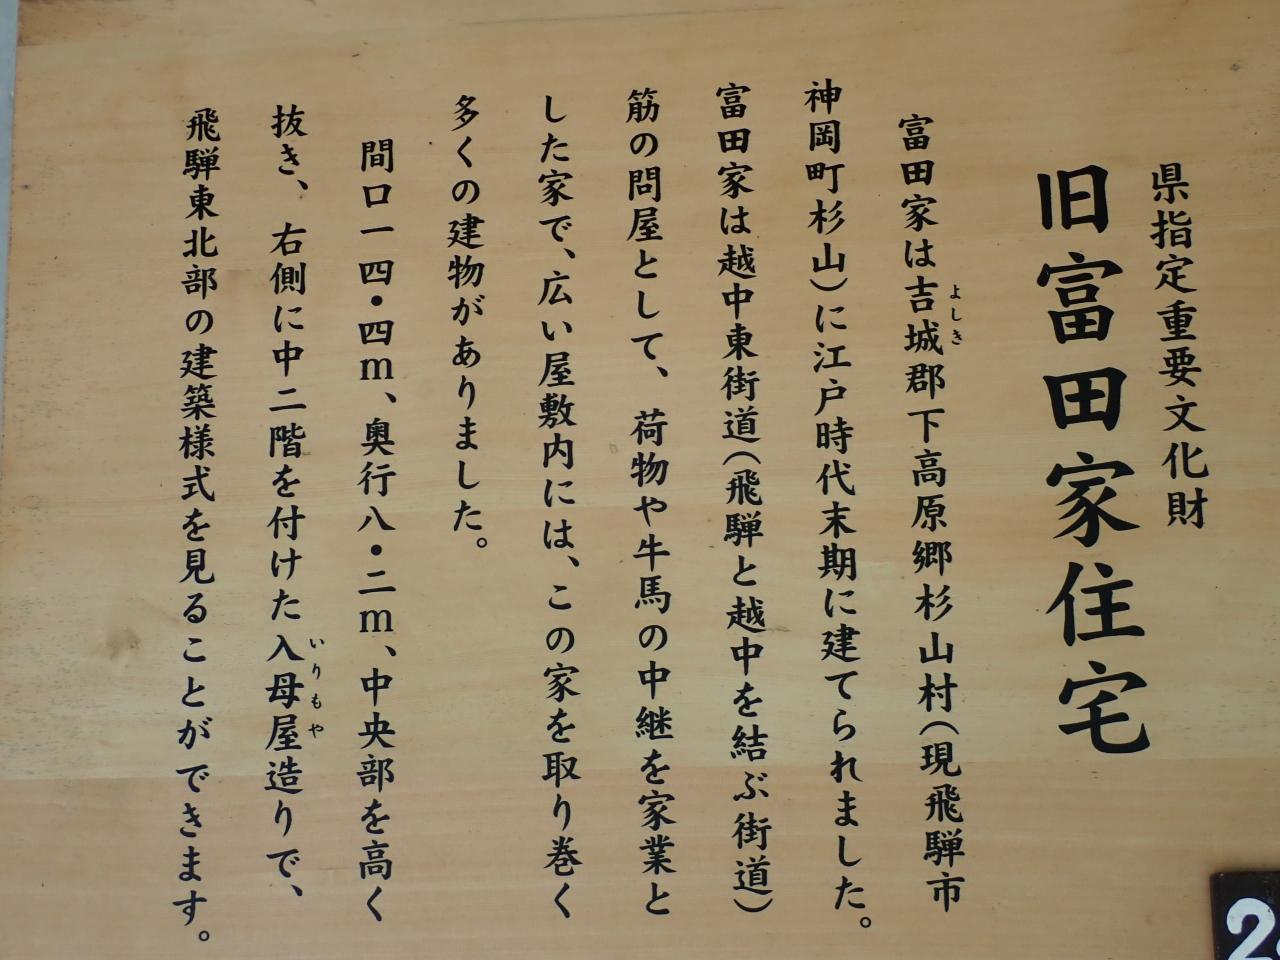 県指定重要文化財
旧富田家住宅
富田家は吉城郡下高原郷杉山村（現飛騨市
よしき
神岡町杉山）に江戸時代末期に建てられました。
富田家は越中東街道（飛騨と越中を結ぶ街道）
筋の問屋として、荷物や牛馬の中継を家業と
した家で、広い屋敷内には、この家を取り巻く
多くの建物がありました。
間口一四・四m、奥行八・二m、中央部を高く
抜き、右側に中二階を付けた入母屋造りで、
いりもや
飛騨東北部の建築様式を見ることができます。
2